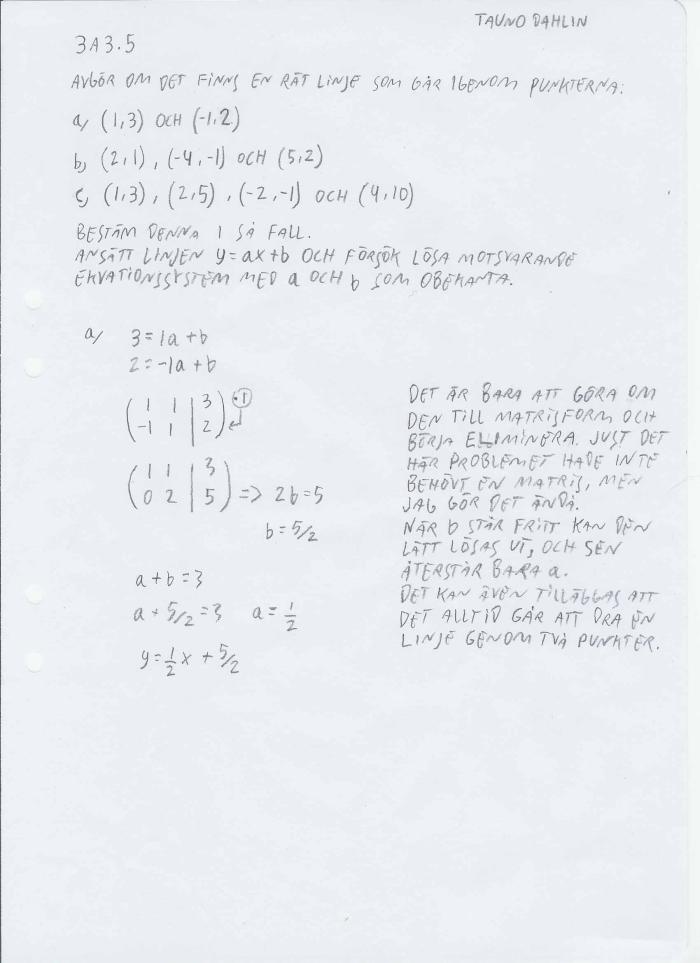 TAUNO DAHLIN
3A3.5
AVGÖR OM DET FINNS EN RÄT LINJE SOM GÅR IGENOM PUNKTERNA:
a) (1,3) OCH (-1,2)
b) (2,1), (-4,-1) OCH (5,2)
c) (1,3), (2,5), (-2,-1) OCH (4,10)
BESTÄM DENNA I SÅ FALL.
ANSÄTT LINJEN y=ax+b OCH FÖRSÖK LÖSA MOTSVARANDE
EKVATIONSSYSTEM MED a OCH b SOM OBEKANTA.
a) 3=1a+b
2=-1a+b
( 1 1 | 3 ) ·1
( -1 1 | 2 ) ↵
( 1 1 | 3 )
( 0 2 | 5 ) => 2b=5
b=5/2
a+b=3
a+5/2=3 a=1/2
y=1/2x+5/2
DET ÄR BARA ATT GÖRA OM
DEN TILL MATRISFORM OCH
BÖRJA ELIMINERA. JUST DET
HÄR PROBLEMET HADE INTE
BEHÖVT EN MATRIS, MEN
JAG GÖR DET ÄNDÅ.
NÄR b STÅR FRITT KAN DEN
LÄTT LÖSAS UT, OCH SEN
ÅTERSTÅR BARA a.
DET KAN ÄVEN TILLÄGGAS ATT
DET ALLTID GÅR ATT DRA EN
LINJE GENOM TVÅ PUNKTER.